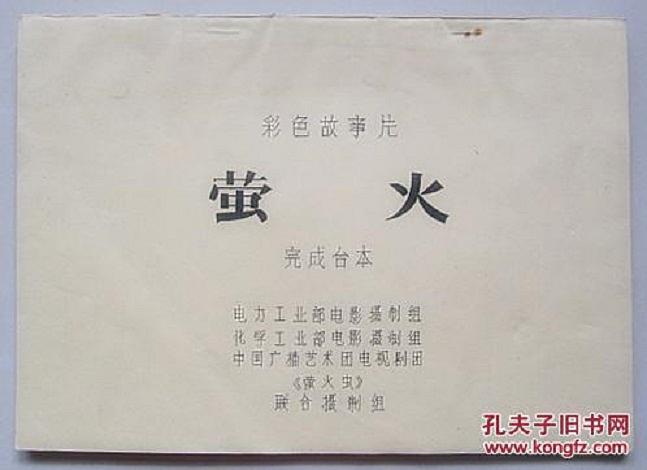 彩色故事片
萤火
完成台本
电力工业部电影摄制组
化学工业部电影摄制组
中国广播艺术团电视剧团
《萤火虫》
联合摄制组
孔夫子旧书网
www.kongfz.com